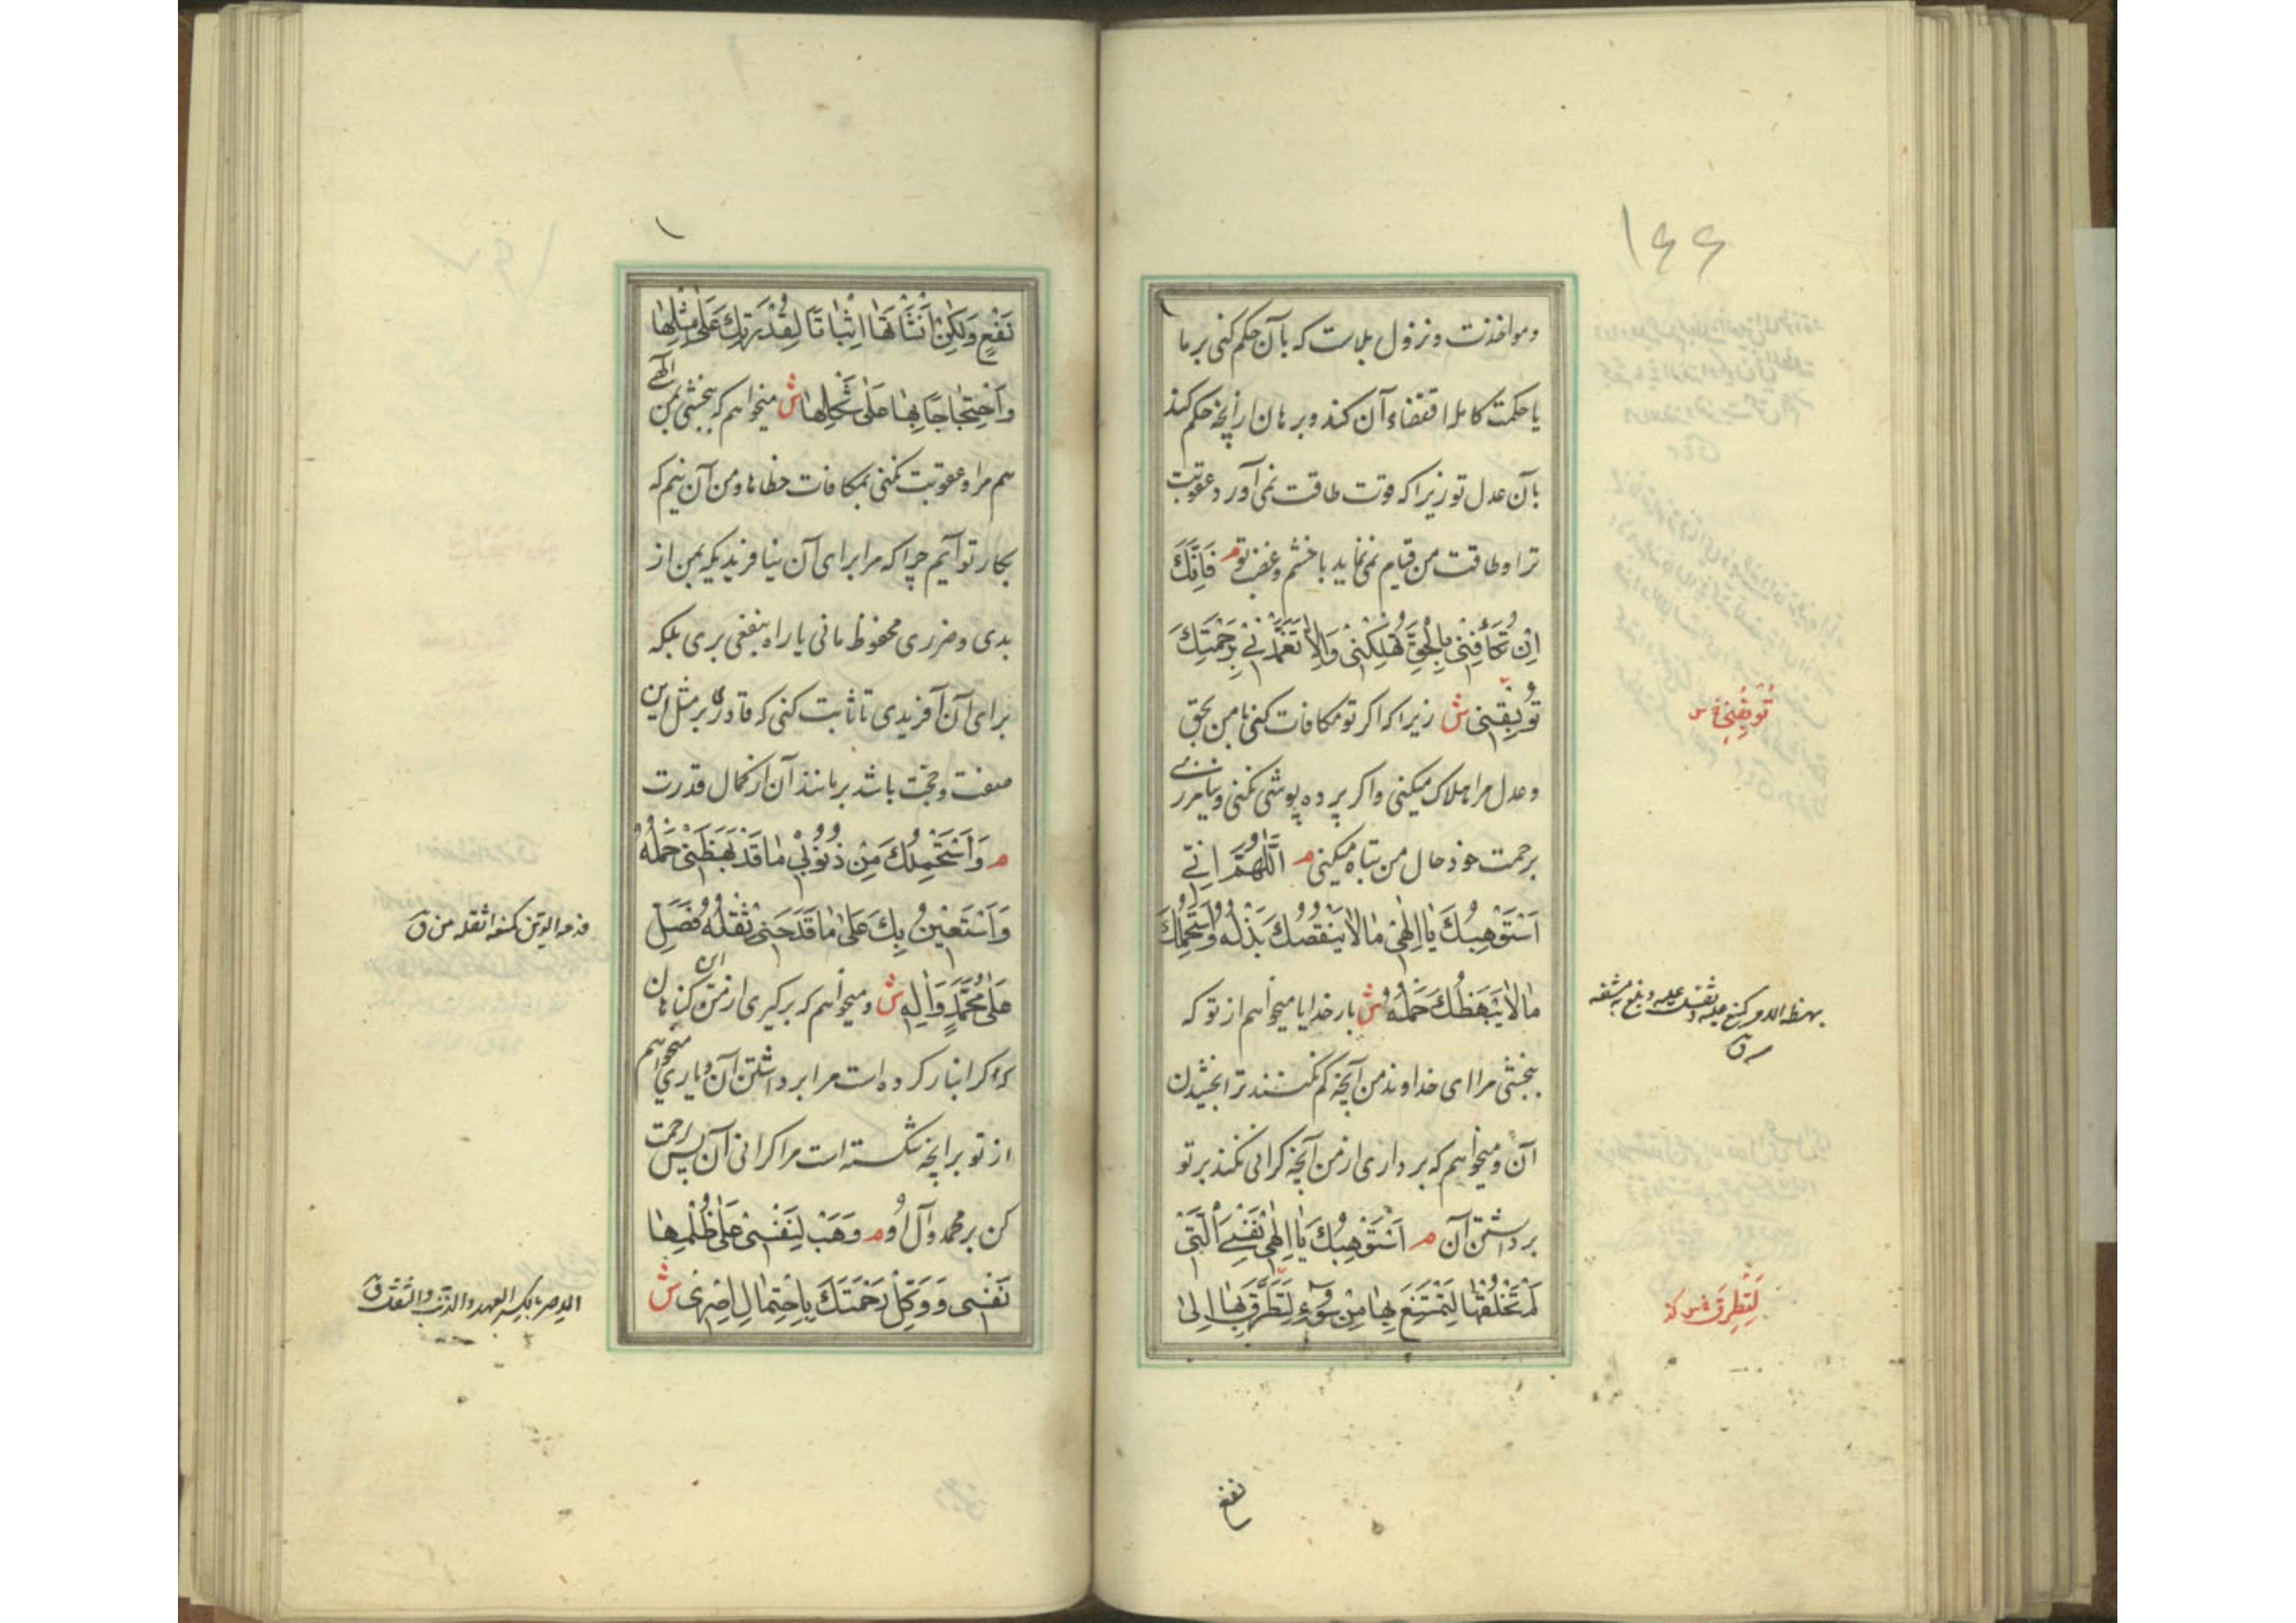 ۱۶۶
ومواخذت ونزول بلاست که بآن حکم کنی بر ما
یا حکمت کامله اقتضاء آن کند وبرهان ارانچه حکم کند
بآن عدل تو زیرا که قوت طاقت نمی آورد عقوبت
ترا وطاقت من قیام نمی نماید با خشم وغضب تو م فَاِنَّكَ
اِنْ تُكَافِنِی بِالْحَقِّ تُهْلِكْنِی وَاِلَّا تَغَمَّدْنِی بِرَحْمَتِكَ
تُوبِقْنِی ش زیرا که اکر تو مکافات کنی با من بحق
وعدل مرا هلاک میکنی واکر پرده پوشی نکنی ونیامرزی
برحمت خود حال من تباه میکنی م اَللّٰهُمَّ اِنِّی
اَسْتَوْهِبُكَ یَا اِلٰهِی مَا لَا یَنْقُصُكَ بَذْلُهُ وَاَسْتَحْمِلُكَ
مَا لَا یَبْهَظُكَ حَمْلُهُ ش بار خدایا میخواهم از تو که
ببخشی مرا ای خداوند من آنچه کم نکند ترا بخشیدن
آن ومیخواهم که برداری از من آنچه کرانی نکند بر تو
برداشتن آن م اَسْتَوْهِبُكَ یَا اِلٰهِی نَفْسِیَ الَّتِی
لَمْ تَخْلُقْهَا لِتَمْتَنِعَ بِهَا مِنْ سُوءٍ لِتَطَرَّقَ بِهَا اِلٰی
تُوبِقْنِی س
بهظه الامر کمنع غلبه وثقل علیه وبلغ به مشقه
ق
لِتَطَرَّقَ س
نفع
نَفْعٍ وَلٰكِنْ اَنْشَأْتَهَا اِثْبَاتًا لِقُدْرَتِكَ عَلٰی مِثْلِهَا
وَاحْتِجَاجًا بِهَا عَلٰی شَكْلِهَا ش میخواهم که ببخشی بمن الهی
هم مرا وعقوبت نکنی بمکافات خطاها ومن آن نیم که
بکار تو آیم چرا که مرا برای آن نیافریدی که بمن از
بدی وضرری محفوظ مانی یا راه بنفعی بری بلکه
برای آن آفریدی تا ثابت کنی که قادری بر مثل این
صفت وحجت باشد بر مانند آن از کمال قدرت
م وَاَسْتَحْمِلُكَ مِنْ ذُنُوبِی مَا قَدْ بَهَظَنِی حَمْلُهُ
وَاَسْتَعِینُ بِكَ عَلٰی مَا قَدْ فَدَحَنِی ثِقْلُهُ فَصَلِّ
عَلٰی مُحَمَّدٍ وَاٰلِهِ ش ومیخواهم که برکیری از من آن کناهان
که کرانبار کرده است مرا برداشتن آن ویاری میخواهم
از تو بر آنچه شکسته است مرا کرانی آن پس رحمت
کن بر محمد وآل او م وَهَبْ لِنَفْسِی عَلٰی ظُلْمِهَا
نَفْسِی وَوَكِّلْ رَحْمَتَكَ بِاحْتِمَالِ اِصْرِی ش
فدحه الدین کمنعه اثقله من ق
الاصر بالکسر العهد والذنب والثقل ق